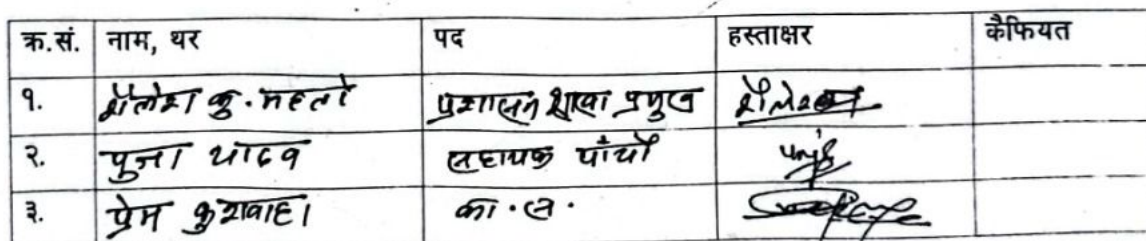 क्र.सं. नाम, थर पद हस्ताक्षर कैफियत
१. शैलेश कु. महतो प्रशासन शाखा प्रमुख शैलेश
२. पुजा यादव सहायक पाँचौ
३. प्रेम कुशवाहा का.स.